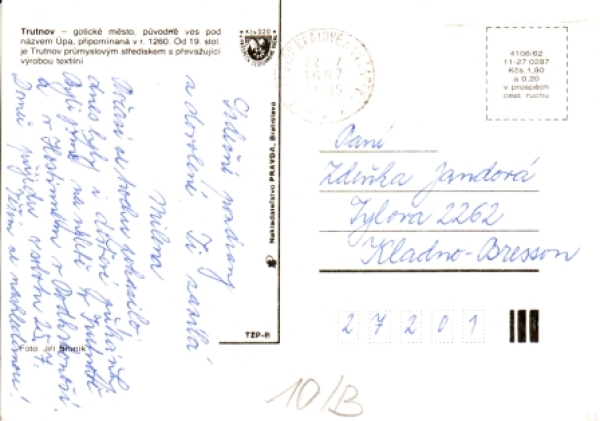 Trutnov – gotické město, původně ves pod
názvem Úpa, připomínaná v r. 1260. Od 19. stol.
je Trutnov průmyslovým střediskem s převažující
výrobou textilní
Kčs 0,20
Srdečné pozdravy
z dovolené Ti zasílá
Milena
Počasí se trochu
dnes i
Byli jsme na v Trutnově
a v Hostinném v Podkrkonoší.
Domů přijedu 25. 7.
Těším se
Foto Jiří
Nakladatelství PRAVDA, Bratislava
TZP-B
4106/82
11-27 0287
Kčs 1,80
a 0,20
v prospěch
cest. ruchu
Paní
Zdeňka Jandová
Tylova 2262
Kladno-Bresson
2 7 2 0 1
10/B